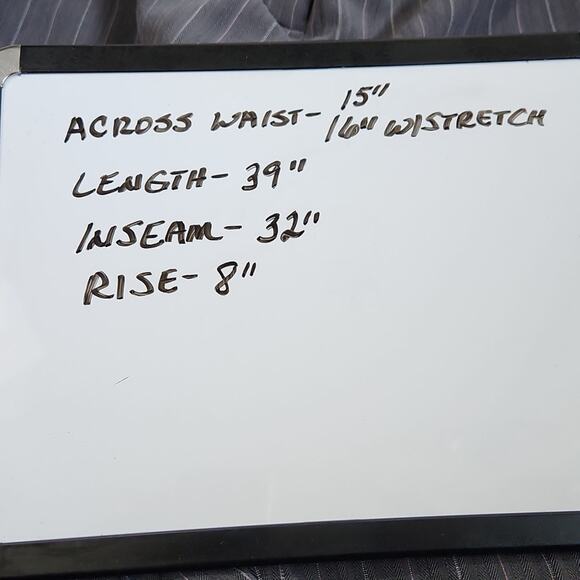 ACROSS WAIST- 15"
16" W/STRETCH
LENGTH- 39"
INSEAM- 32"
RISE- 8"